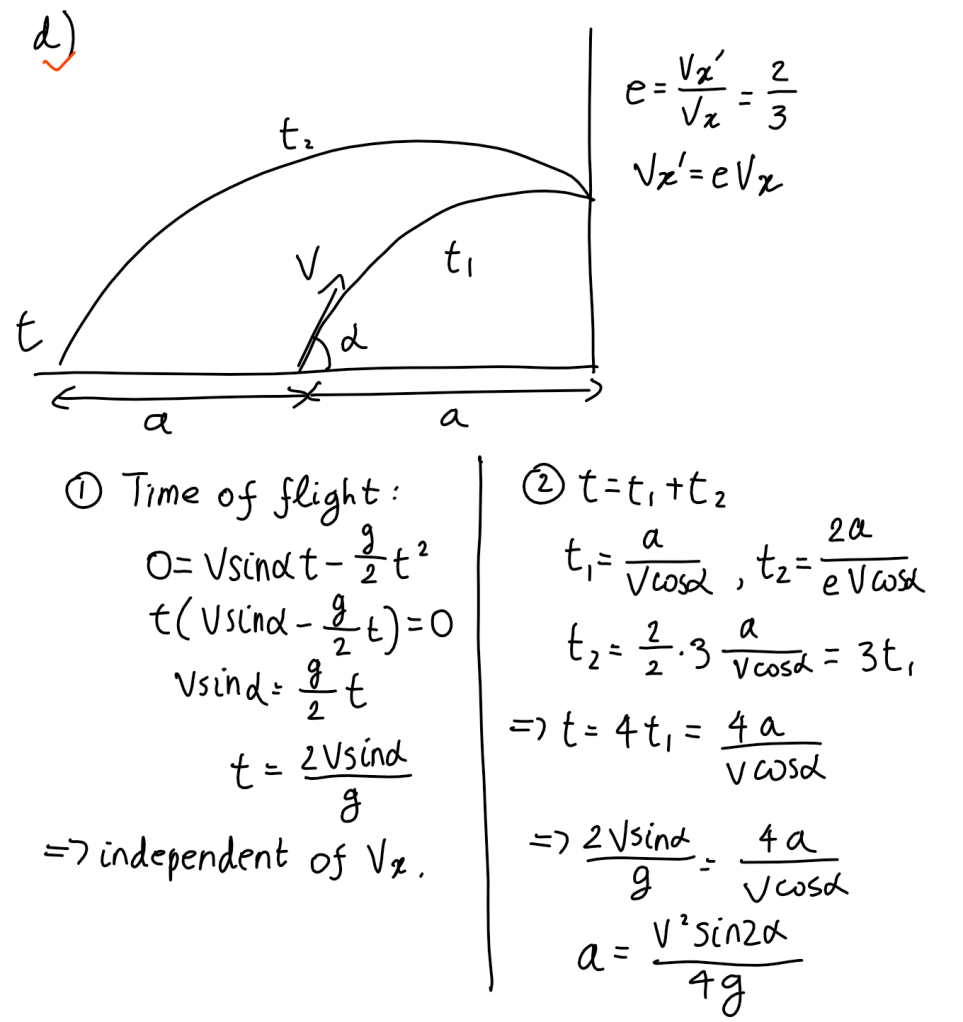 d)
e = Vx'/Vx = 2/3
Vx' = eVx
t₂
V
t₁
t
α
a
a
① Time of flight:
0 = Vsinαt - g/2 t²
t(Vsinα - g/2 t) = 0
Vsinα = g/2 t
t = 2Vsinα/g
=> independent of Vx.
② t = t₁ + t₂
t₁ = a/Vcosα , t₂ = 2a/eVcosα
t₂ = 2/2 · 3 a/Vcosα = 3t₁
=> t = 4t₁ = 4a/Vcosα
=> 2Vsinα/g = 4a/Vcosα
a = V²sin2α/4g